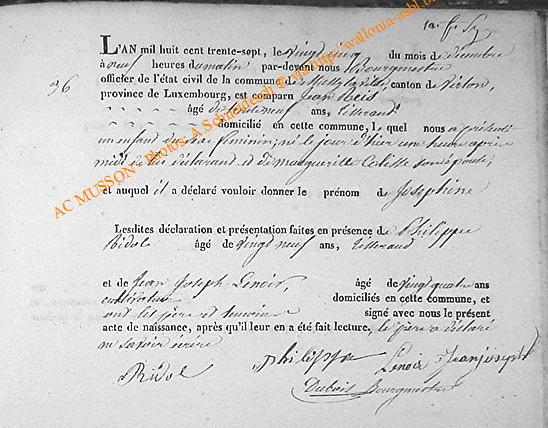 L'AN mil huit cent trente-sept, le vingt cinq du mois de décembre
à neuf heures du matin par-devant nous Bourgmestre
officier de l'état civil de la commune de canton de Virton,
36
province de Luxembourg, est comparu Jean
âgé de trente neuf ans, tisserand
domicilié en cette commune, Lequel nous a présenté
un enfant du sexe féminin, né le jour d'hier une heure après
midi de lui déclarant et de margueritte Colette son épouse,
et auquel il a déclaré vouloir donner le prénom de Joséphine
Lesdites déclaration et présentation faites en présence de Philippe
Ridol âgé de vingt neuf ans, tisserand
et de Jean Joseph Lenoir, âgé de vingt quatre ans
cultivateur domiciliés en cette commune, et
ont les père et témoins signé avec nous le présent
acte de naissance, après qu'il leur en a été fait lecture, le père a déclaré
ne savoir écrire
Ridol philippe Lenoir Jeanjoseph
Dubois Bourgmestre
AC MUSSON - Photos: A Schneider sh @ asbl http://wallonia-asbl.b